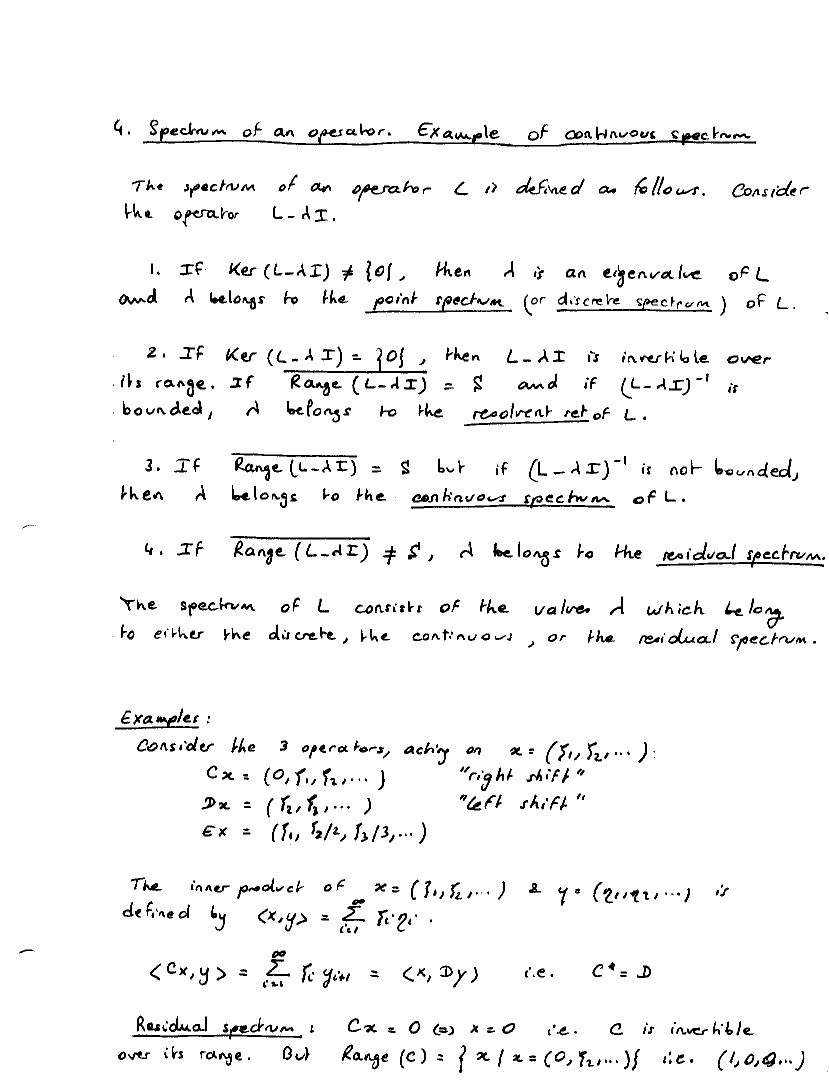 4. Spectrum of an operator. Example of continuous spectrum
The spectrum of an operator L is defined as follows. Consider
the operator L-λI.
1. If Ker (L-λI) ≠ {0}, then λ is an eigenvalue of L
and λ belongs to the point spectrum (or discrete spectrum) of L.
2. If Ker (L-λI) = {0}, then L-λI is invertible over
its range. If \overline{Range (L-λI)} = S and if (L-λI)⁻¹ is
bounded, λ belongs to the resolvent set of L.
3. If \overline{Range (L-λI)} = S but if (L-λI)⁻¹ is not bounded,
then λ belongs to the continuous spectrum of L.
4. If \overline{Range (L-λI)} ≠ S, λ belongs to the residual spectrum.
The spectrum of L consists of the values λ which belong
to either the discrete, the continuous, or the residual spectrum.
Examples:
Consider the 3 operators, acting on x = (ξ₁, ξ₂, ...):
Cx = (0, ξ₁, ξ₂, ...) "right shift"
Dx = (ξ₂, ξ₃, ...) "left shift"
Ex = (ξ₁, ξ₂/2, ξ₃/3, ...)
The inner product of x = (ξ₁, ξ₂, ...) & y = (η₁, η₂, ...) is
defined by <x,y> = ∑_{i=1}^{∞} ξᵢ ηᵢ.
<Cx,y> = ∑_{i=1}^{∞} ξᵢ yᵢ₊₁ = <x, Dy> i.e. C* = D
Residual spectrum: Cx = 0 ⇔ x = 0 i.e. C is invertible
over its range. But Range (C) = {x / x = (0, ξ₂, ...)} i.e. (1,0,0...)